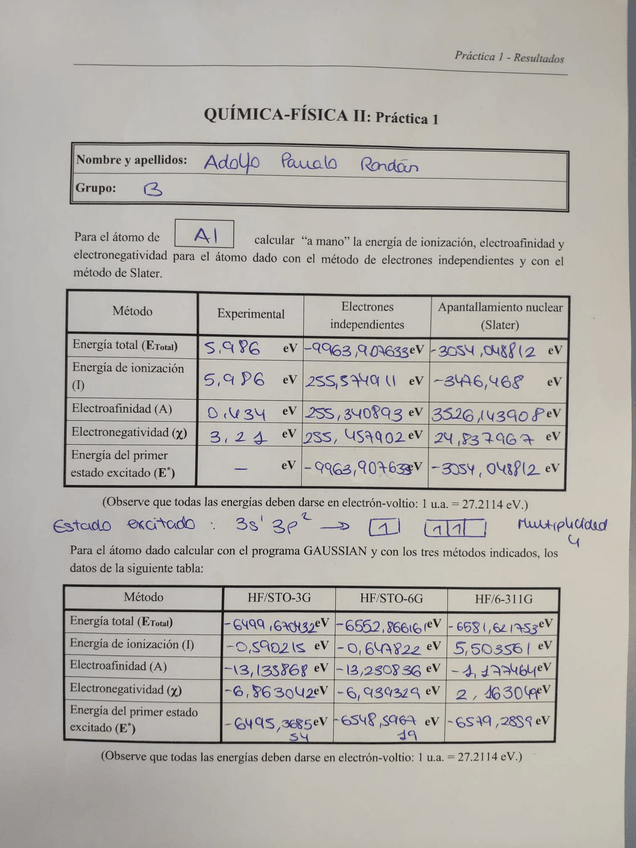 Práctica 1 - Resultados
QUÍMICA-FÍSICA II: Práctica 1
Nombre y apellidos: Adolfo Rondán
Grupo: B
Para el átomo de Al calcular “a mano” la energía de ionización, electroafinidad y
electronegatividad para el átomo dado con el método de electrones independientes y con el
método de Slater.
Método Experimental Electrones independientes Apantallamiento nuclear (Slater)
Energía total (ETotal) 5,986 eV -9963,907633 eV -3054,048812 eV
Energía de ionización (I) 5,986 eV 255,574911 eV -3476,468 eV
Electroafinidad (A) 0,434 eV 255,340893 eV 3526,143908 eV
Electronegatividad (χ) 3,21 eV 255,457902 eV 24,837967 eV
Energía del primer estado excitado (E*) — eV -9963,907633 eV -3054,048812 eV
(Observe que todas las energías deben darse en electrón-voltio: 1 u.a. = 27.2114 eV.)
Estado excitado : 3s¹ 3p² → 1 1 1 Multiplicidad 4
Para el átomo dado calcular con el programa GAUSSIAN y con los tres métodos indicados, los
datos de la siguiente tabla:
Método HF/STO-3G HF/STO-6G HF/6-311G
Energía total (ETotal) -6499,670432 eV -6552,866161 eV -6581,621753 eV
Energía de ionización (I) -0,590215 eV -0,647822 eV 5,503561 eV
Electroafinidad (A) -13,135868 eV -13,230836 eV -1,177464 eV
Electronegatividad (χ) -6,863042 eV -6,939329 eV 2,163049 eV
Energía del primer estado excitado (E*) -6495,368554 eV -6548,596719 eV -6579,2859 eV
(Observe que todas las energías deben darse en electrón-voltio: 1 u.a. = 27.2114 eV.)